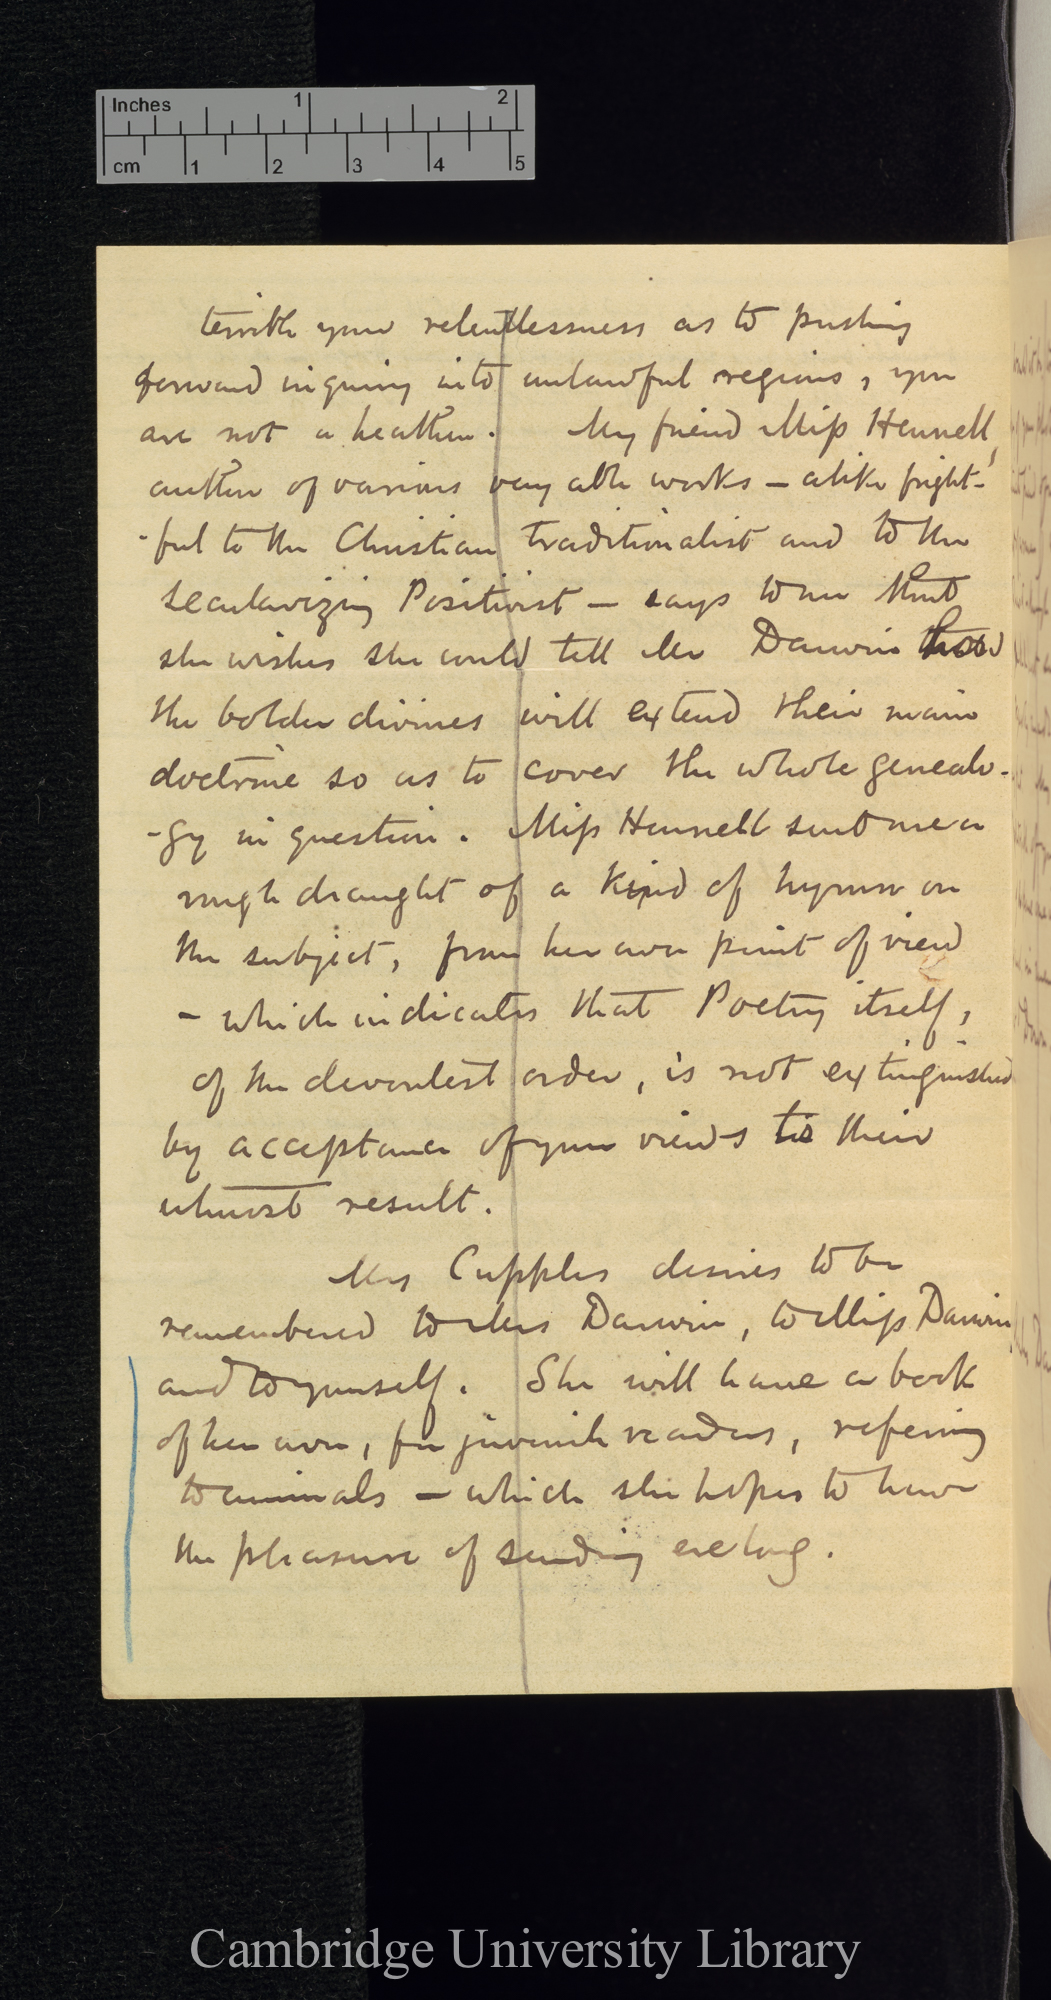 Inches 1 2
cm 1 2 3 4 5
terrible your relentlessness as to pushing
forward inquiry into unlawful regions, you
are not a heathen. My friend Miss Hennell,
author of various very able works — alike fright-
-ful to the Christian traditionalist and to the
secularizing Positivist — says to me that
she wishes she could tell Mr Darwin how
the bolder divines will extend their main
doctrine so as to cover the whole genealo-
-gy in question. Miss Hennell sent me a
rough draught of a kind of hymn on
the subject, from her own point of view
– which indicates that Poetry itself,
of the devoutest order, is not extinguished
by acceptance of your views to their
utmost result.
Mrs Cupples desires to be
remembered to Mrs Darwin, to Miss Darwin,
and to yourself. She will have a book
of her own, for juvenile readers, refering
to animals — which she hopes to have
the pleasure of sending ere long.
Cambridge University Library